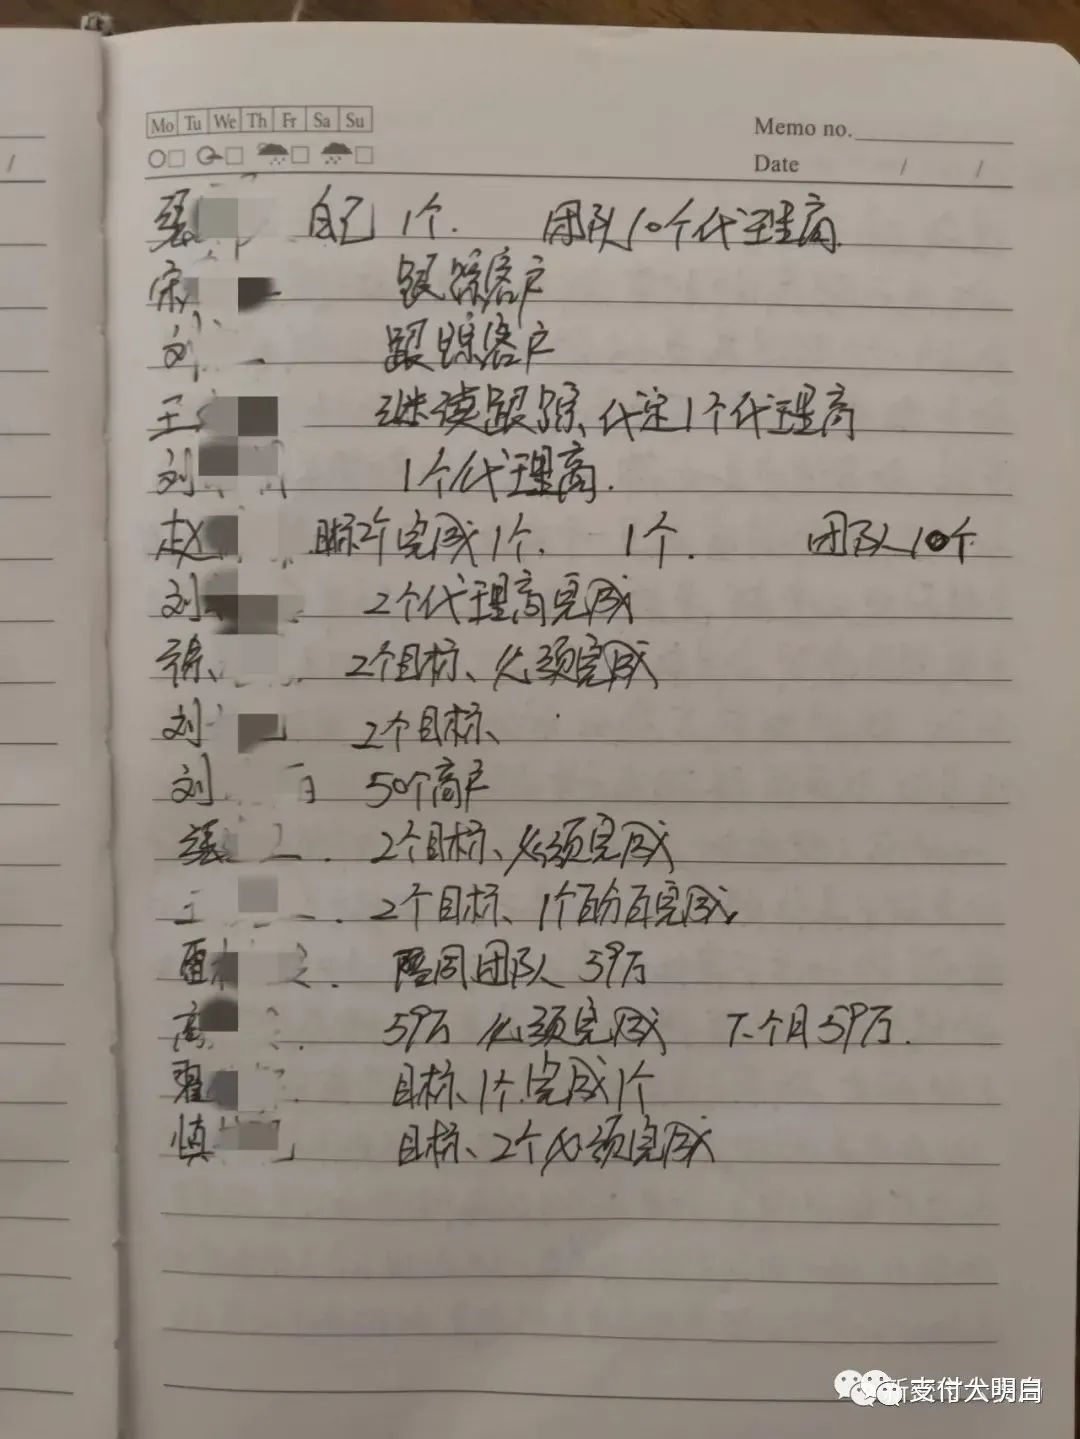 Mo Tu We Th Fr Sa Su
Memo no.
Date / /
自己 1个. 团队10个代理商.
宋 跟踪客户
刘 跟踪客户
王 继续跟踪、代定1个代理商
刘 1个代理商.
赵 目标2个完成1个. 1个. 团队10个
刘 2个代理商完成
徐 2个目标、必须完成
刘 2个目标、
刘 50个商户
张 2个目标、必须完成
王 2个目标、1个百分百完成.
雷 陪同团队 59万
高 59万 必须完成 下个月59万.
翟 目标、1个.完成1个
慎 目标、2个必须完成